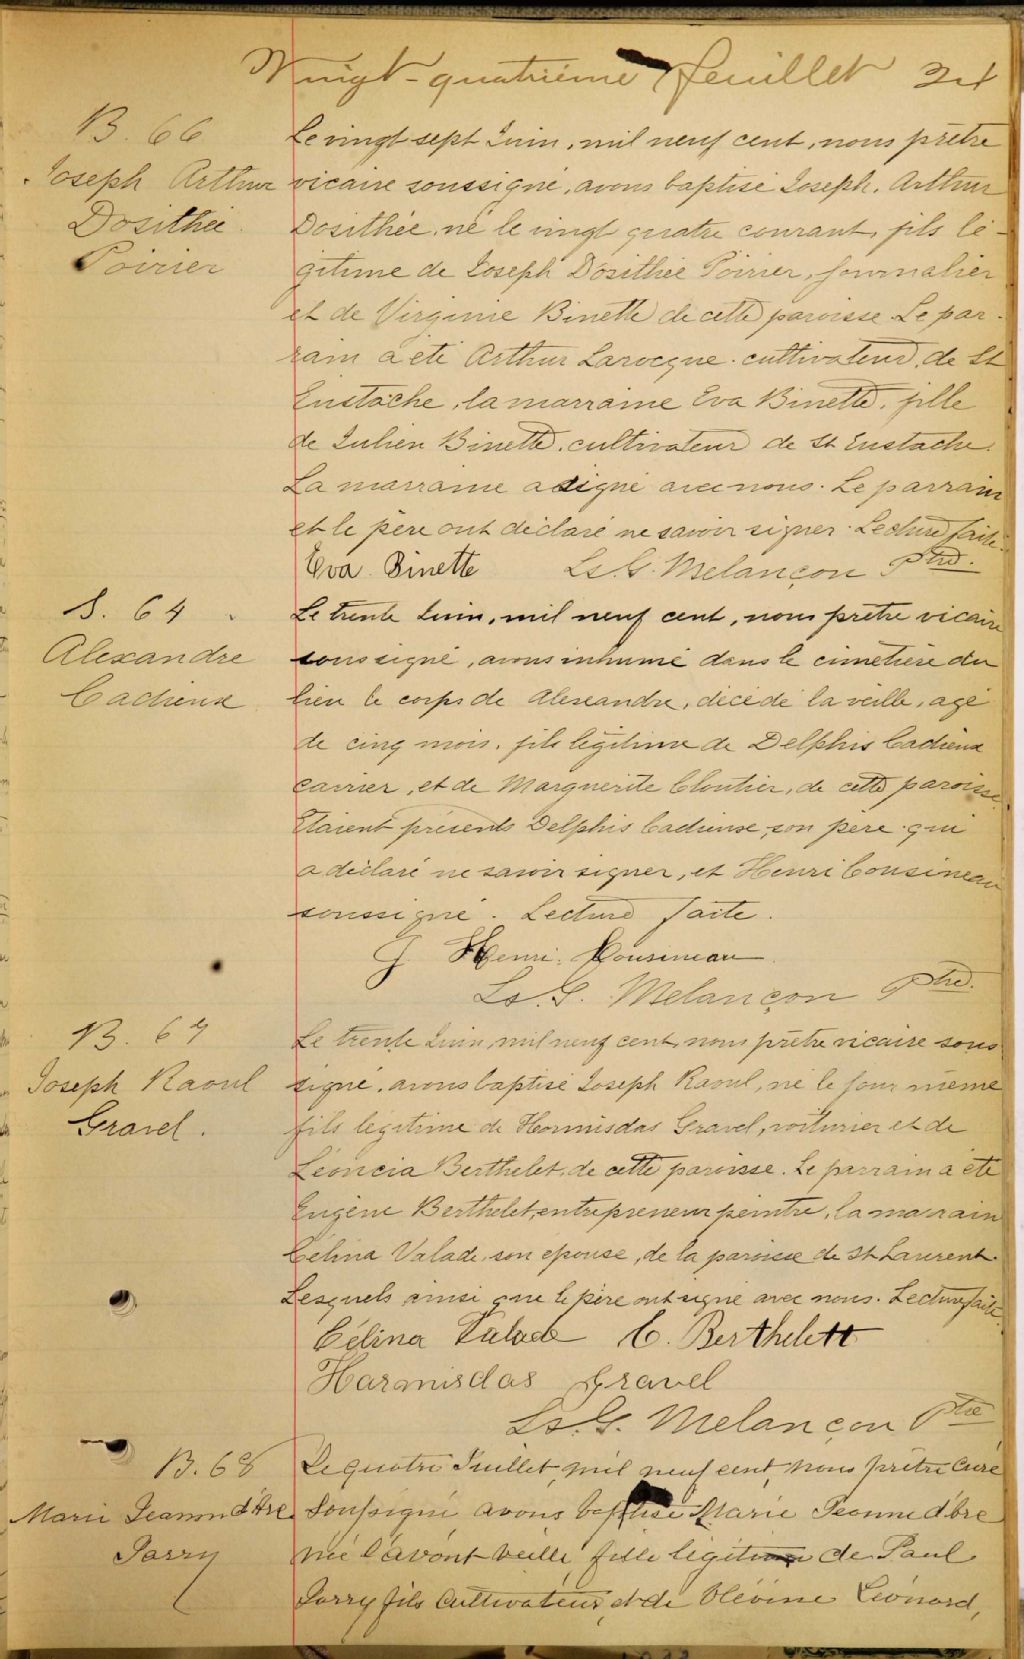 Vingt-quatrième feuillet 24
B. 66
Joseph Arthur
Dosithée
Poirier
Le vingt sept Juin, mil neuf cent, nous prêtre
vicaire soussigné, avons baptisé Joseph. Arthur
Dosithée, né le vingt quatre courant, fils lé-
gitime de Joseph Dosithée Poirier, journalier
et de Virginie Binette de cette paroisse. Le par-
rain a été Arthur Larocque cultivateur, de St
Eustache, la marraine Eva Binette, fille
de Julien Binette, cultivateur de St Eustache.
La marraine a signé avec nous. Le parrain
et le père ont déclaré ne savoir signer. Lecture faite.
Eva Binette Ls. G. Melançon Ptre.
S. 64
Alexandre
Cadieux
Le trente Juin, mil neuf cent, nous prêtre vicaire
soussigné, avons inhumé dans le cimetière du
lieu le corps de Alexandre, décédé la veille, agé
de cinq mois, fils légitime de Delphis Cadieux
carrier, et de Marguerite Cloutier, de cette paroisse.
Etaient présents Delphis Cadieux, son père qui
a déclaré ne savoir signer, et Henri Cousineau
soussigné. Lecture faite.
J. Henri Cousineau
Ls. G. Melançon Ptre.
B. 67
Joseph Raoul
Gravel.
Le trente Juin, mil neuf cent, nous prêtre vicaire sous
signé, avons baptisé Joseph Raoul, né le jour même
fils légitime de Hormisdas Gravel, voiturier et de
Léoncia Berthelet, de cette paroisse. Le parrain a été
Eugène Berthelet, entrepreneur peintre, la marrain
Célina Valade, son épouse, de la paroisse de St Laurent.
Lesquels ainsi que le père ont signé avec nous. Lecture faite.
Célina Valade E. Berthelett
Harmisdas Gravel
Ls. G. Melançon Ptre
B. 68
Marie Jeanne d'Arc
Parry
Le quatre Juillet, mil neuf cent, nous prêtre curé
soussigné avons baptisé Marie Jeanne d'Arc
née l'avant-veille, fille légitime de Paul
Parry fils cultivateur, et de Léonard,